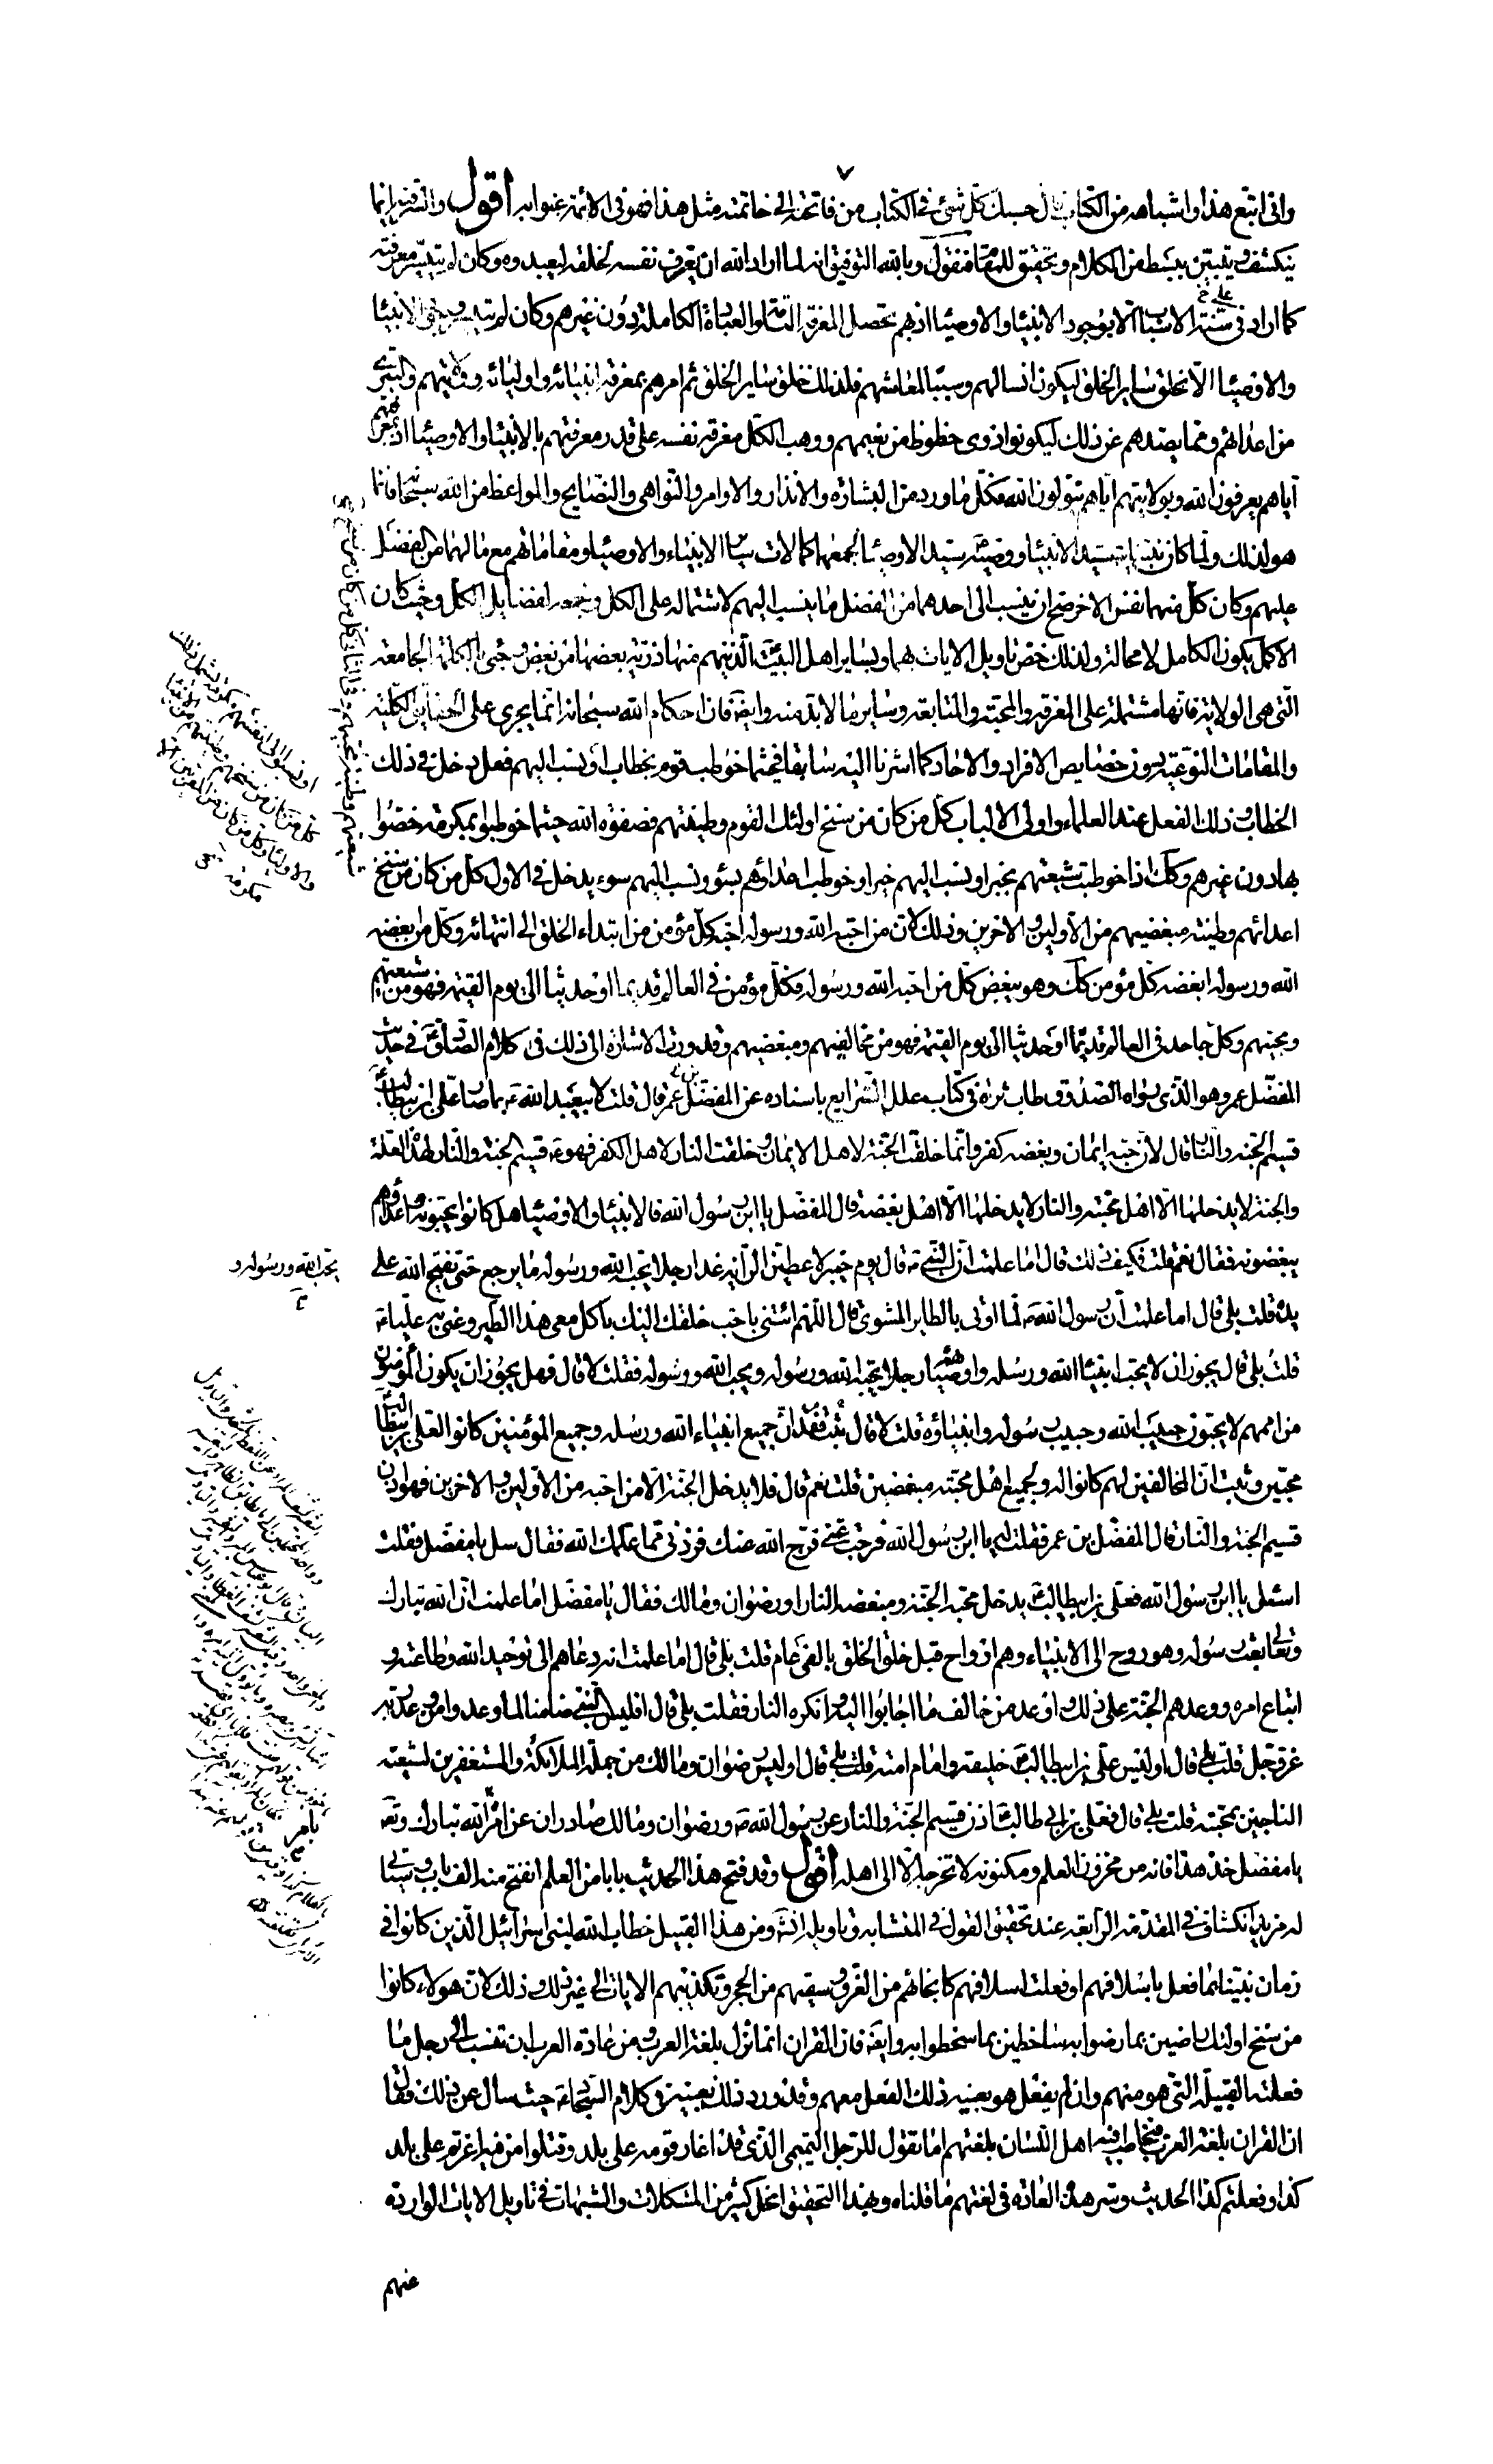 ٧
واني اتبع هذا واشباهه من الكتاب قال حسبك كل شئ في الكتاب من فاتحته الى خاتمته مثل هذا فهو في الائمة عنوا به اقول والسر فيه انما
ينكشف ويتبين ببسط من الكلام وتحقيق للمقام فنقول وبالله التوفيق انه لما اراد الله ان يعرف نفسه لخلقه ليعبدوه وكان لم يتيسر معرفته
كما اراد على سنة الاسباب الا بوجود الانبياء والاوصياء اذ بهم تحصل المعرفة التامة والعبادة الكاملة دون غيرهم وكان لم يتيسر وجود الانبياء
والاوصياء الا بخلق ساير الخلق ليكون انسا لهم وسببا لمعاشهم فلذلك خلق ساير الخلق ثم امرهم بمعرفة انبيائه واوليائه وولايتهم والتبري
من اعدائهم ومما يصدهم عن ذلك ليكونوا ذوى حظوظ من نعيمهم ووهب الكل معرفة نفسه على قدر معرفتهم بالانبياء والاوصياء اذ بمعرفتهم
اياهم يعرفون الله وبولايتهم اياهم يتولون الله فكل ما ورد من البشارة والانذار والاوامر والنواهي والنصايح والمواعظ من الله سبحانه فانما
هو لذلك ولما كان نبينا سيد الانبياء ووصيه سيد الاوصياء لجمعهما كمالات ساير الانبياء والاوصياء ومقاماتهم مع ما لهما من الفضل
عليهم وكان كل منهما نفس الاخر صح ان ينسب الى احدهما من الفضل ما ينسب اليهم لاشتماله على الكل وجمعه لفضايل الكل وحيث كان
الاكمل يكون الكامل لا محالة ولذلك خص تاويل الايات بهما وبساير اهل البيت الذين هم منهما ذرية بعضها من بعض وجئ بالكلمة الجامعة
التي هي الولاية فانها مشتملة على المعرفة والمحبة والمتابعة وساير ما لابد منه وايضا فان احكام الله سبحانه انما يجرى على الحقايق الكلية
والمقامات النوعية دون خصايص الافراد والاحاد كما اشرنا اليه سابقا فحيثما خوطب قوم بخطاب او نسب اليهم فعل يدخل في ذلك
الخطاب وذلك الفعل عند العلماء واولى الالباب كل من كان من سنخ اولئك القوم وطينتهم فصفوة الله حيثما خوطبوا بمكرمة خصوا
بها دون غيرهم وكذلك اذا خوطبت شيعتهم بخير او نسب اليهم خير او خوطب اعداؤهم بسوء ونسب اليهم سوء يدخل في الاول كل من كان من سنخ
اعدائهم وطينة مبغضيهم من الاولين والاخرين وذلك لان من احبه الله ورسوله احبه كل مؤمن من ابتداء الخلق الى انتهائه وكل من بغضه
الله ورسوله ابغضه كل مؤمن كك وهو يبغض كل من احبه الله ورسوله فكل مؤمن في العالم قديما او حديثا الى يوم القيمة فهو من شيعتهم
ومحبيهم وكل جاحد في العالم قديما او حديثا الى يوم القيمة فهو من مخالفيهم ومبغضيهم وقد وردت الاشارة الى ذلك في كلام الصادق في حديث
المفضل بن عمر وهو الذي رواه الصدوق طاب ثراه في كتاب علل الشرايع باسناده عن المفضل بن عمر قال قلت لابيعبد الله ع بما صار على بن ابيطالب
قسيم الجنة والنار قال لان حبه ايمان وبغضه كفر وانما خلقت الجنة لاهل الايمان وخلقت النار لاهل الكفر فهو ع قسيم الجنة والنار لهذه العلة
والجنة لا يدخلها الا اهل محبته والنار لا يدخلها الا اهل بغضه قال المفضل يا ابن رسول الله فالانبياء والاوصياء هل كانوا يحبونه واعداؤهم
يبغضونه فقال نعم قلت فكيف ذلك قال اما علمت ان النبي ص قال يوم خيبر لاعطين الراية غدا رجلا يحب الله ورسوله ما يرجع حتى يفتح الله على
يده قلت بلى قال اما علمت ان رسول الله ص لما اوتى بالطاير المشوي قال اللهم ائتني باحب خلقك اليك ياكل معى هذا الطير وعنى به عليا ع
قلت بلى قال يجوز ان لا يحب انبياء الله ورسله واوصياؤهم رجلا يحبه الله ورسوله ويحب الله ورسوله فقلت لا قال فهل يجوز ان يكون المؤمنون
من اممهم لا يحبون حبيب الله وحبيب رسوله وانبياؤه قلت لا قال فقد ثبت ان جميع انبياء الله ورسله وجميع المؤمنين كانوا لعلى بن ابيطالب
محبين وثبت ان المخالفين لهم كانوا له ولجميع اهل محبته مبغضين قلت نعم قال فلا يدخل الجنة الا من احبه من الاولين والاخرين فهو اذن
قسيم الجنة والنار قال المفضل بن عمر فقلت له يا ابن رسول الله فرجت عني فرج الله عنك فزدنى مما علمك الله فقال سل يا مفضل فقلت
اسئل يا ابن رسول الله فعلى بن ابيطالب يدخل محبه الجنة ومبغضه النار او رضوان ومالك فقال يا مفضل اما علمت ان الله تبارك
وتعالى بعث رسوله وهو روح الى الانبياء وهم ارواح قبل خلق الخلق بالفى عام قلت بلى قال اما علمت انه دعاهم الى توحيد الله وطاعته و
اتباع امره ووعدهم الجنة على ذلك واوعد من خالف ما اجابوا اليه وانكره النار فقلت بلى قال افليس النبي ضامنا لما وعد واوعد عن ربه
عز وجل قلت بلى قال اوليس على بن ابيطالب خليفته وامام امته قلت بلى قال اوليس رضوان ومالك من جملة الملائكة والمستغفرين لشيعته
الناجين بمحبته قلت بلى قال فعلى بن ابي طالب اذن قسيم الجنة والنار عن رسول الله ص ورضوان ومالك صادران عن امره بامر الله تبارك وتعه
يا مفضل خذ هذا فانه من مخزون العلم ومكنونه لا تخرجه الا الى اهله اقول وقد فتح هذا الحديث بابا من العلم انفتح منه الف باب وسياتي
له مزيد انكشاف في المقدمة الرابعة عند تحقيق القول في المتشابه وتاويله انشه ومن هذا القبيل خطاب الله لبني اسرائيل الذين كانوا في
زمان نبينا بما فعل باسلافهم او فعلت اسلافهم كانجائهم من الغرق وسقيهم من الحجر وتكذيبهم الايات الى غير ذلك وذلك لان هولاء كانوا
من سنخ اولئك راضين بما رضوا به ساخطين بما سخطوا به وايضا فان القران انما نزل بلغة العرب ومن عادة العرب ان تنسب الى رجل ما
فعلته القبيلة التي هو منهم وان لم يفعل هو بعينه ذلك الفعل معهم وقد ورد ذلك بعينه في كلام السجاد ع حيث سأل عن ذلك فقال
ان القران بلغة العرب فيخاطب فيه اهل اللسان بلغتهم اما تقول للرجل التميمي الذي قد اغار قومه على بلد وقتلوا من فيه اغرتم على بلد
كذا وفعلتم كذا الحديث وسر هذه العادة في لغتهم ما قلناه وبهذا التحقيق انحل كثير من المشكلات والشبهات في تاويل الايات الواردة
عنهم
او نسبوا الى انفسهم مكرمة يشمل ذلك
كل من كان من سنخهم وطينتهم من الانبيا
والاوليا وكل من كان من المقربين الا
مكرمة
شيعتهم وطينة محبيهم وفي الثاني كل من كان من سنخ
يحب الله ورسوله و